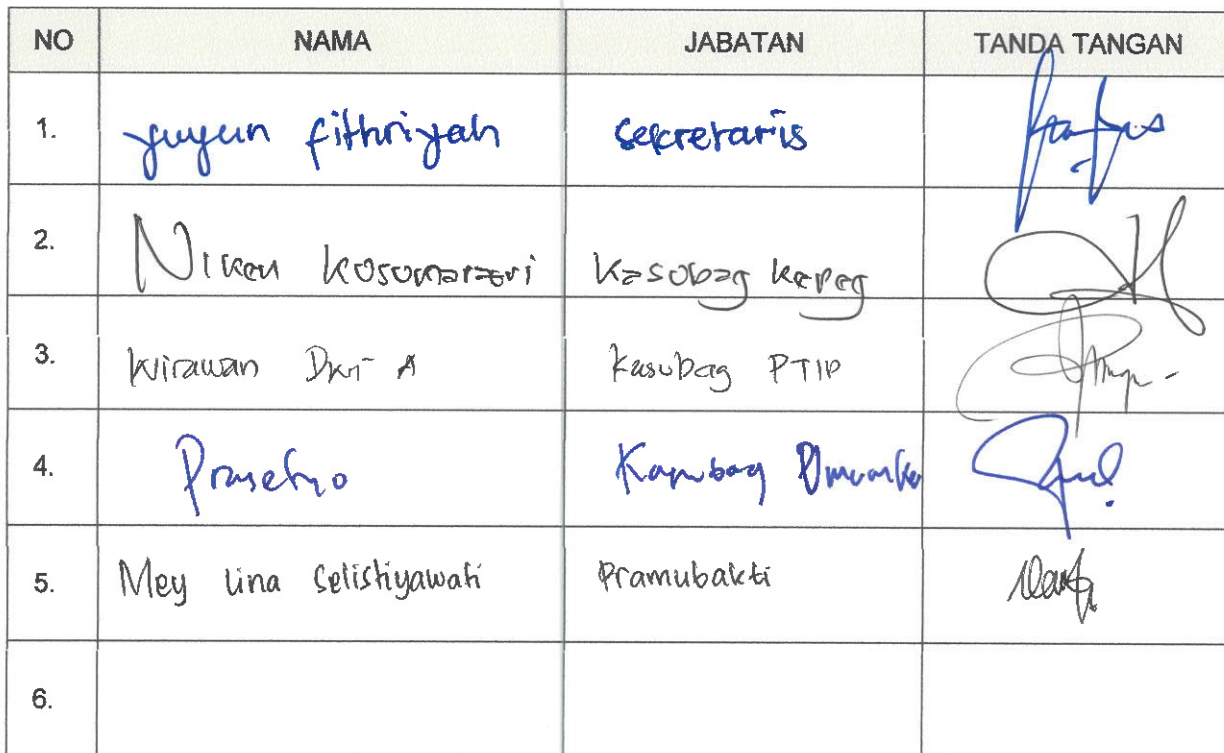 NO NAMA JABATAN TANDA TANGAN
1. yuyun fithriyah sekretaris
2. Niken Kusumarasri Kasubag kepeg
3. Wirawan Dwi A Kasubag PTIP
4. Prasetyo Kasubbag Umum
5. Mey Lina Selistiyawati Pramubakti
6.